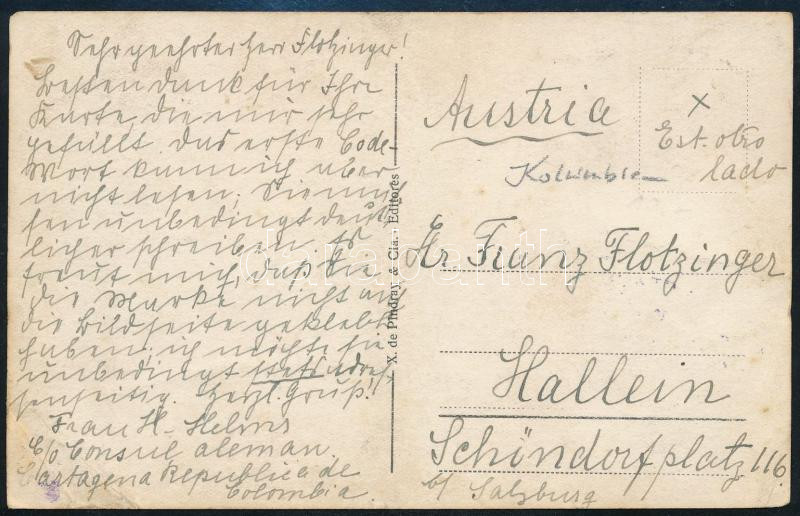 Sehr geehrter Herr Flotzinger!
Besten dank für Ihre
Karte, die mir sehr
gefällt. Das erste Code-
Wort kann ich aber
nicht lesen, Sie müs-
sen unbedingt deut-
licher schreiben. Es
freut mich, daß Sie
die Marke nicht auf
die Bildseite geklebt
haben; ich möchte sie
unbedingt stets adres-
senseitig. Herzl. Gruß!
Frau H. Helms
c/o Consul aleman.
Cartagena Republica de
Colombia.
X. de Pindray & Cia., Editores
Austria
x
Est. otro
lado
Kolumbien
Hr Franz Flotzinger
Hallein
Schöndorfplatz 116.
b/ Salzburg
darabanth